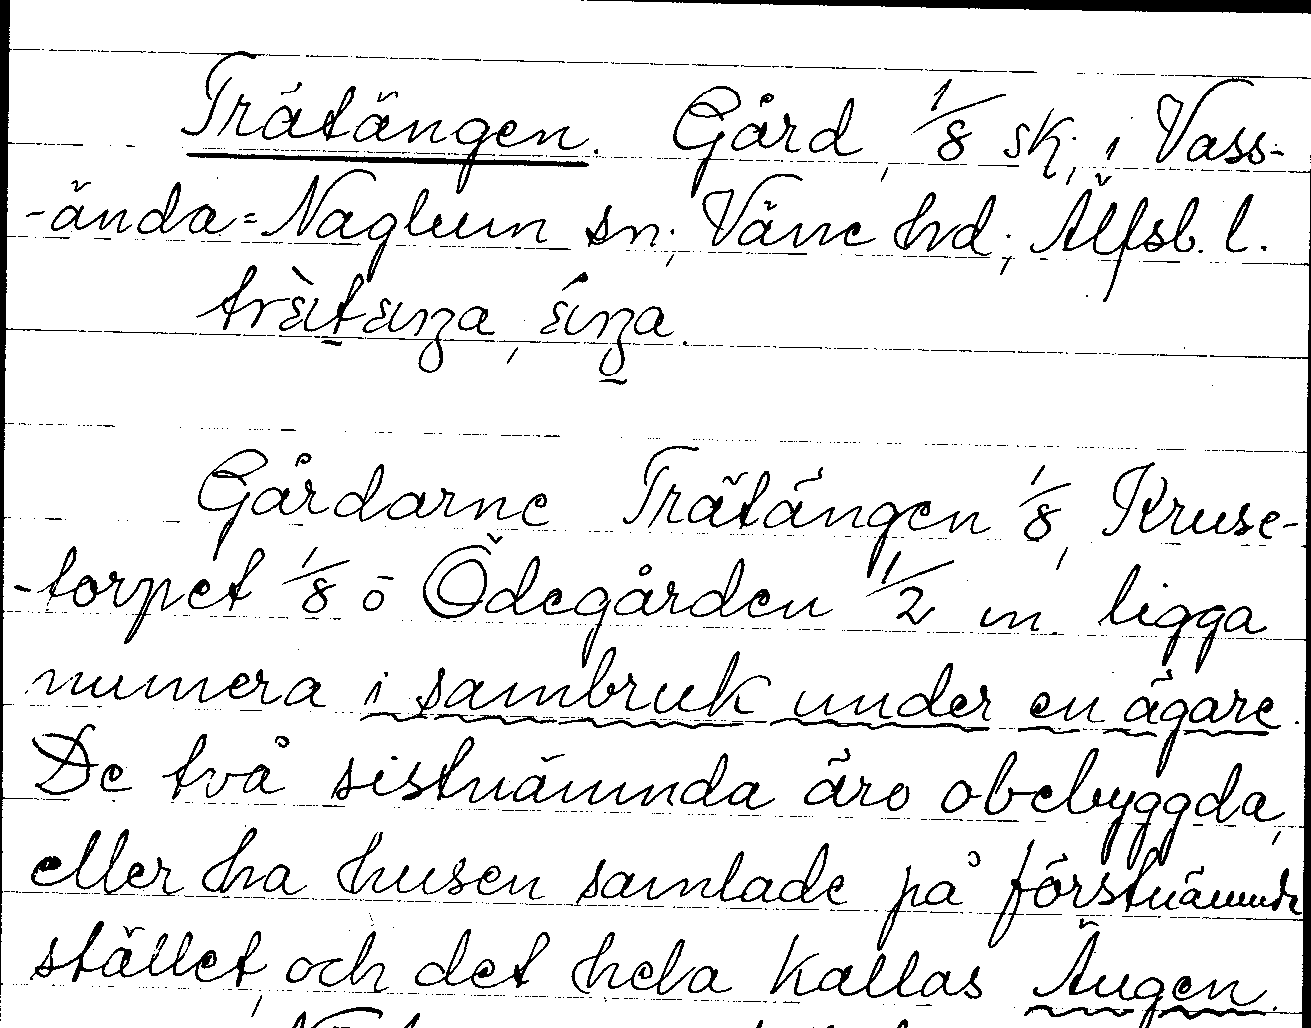 Trätängen. Gård, 1/8 sk, i Vass-
-ända-Naglum sn, Väne hd, Älfsb. l.
Gårdarne Trätängen 1/8, Kruse-
-torpet 1/8 o Ödegården 1/2 m. ligga
numera i sambruk under en ägare.
De två sistnämnda äro obebyggda,
eller ha husen samlade på förstnämnda
stället, och det hela kallas Ängen.